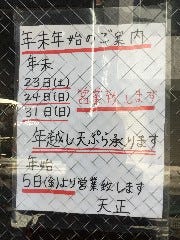 年末年始のご案内
年末
23日(土)
24日(日) 営業致します
31日(日)
年越し天ぷら承ります
年始
5日(金)より営業致します
天正